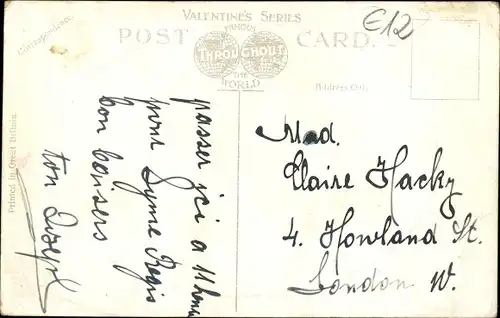 VALENTINE'S SERIES
FAMOUS
THROUGHOUT
THE
WORLD
POST CARD.
£12
Correspondence.
Address Only.
Printed in Great Britain.
passer ici a 11 heures
pour Lyme Regis
bon baisers
ton Joseph
Mad.
Claire Hacky
4. Howland St.
London W.